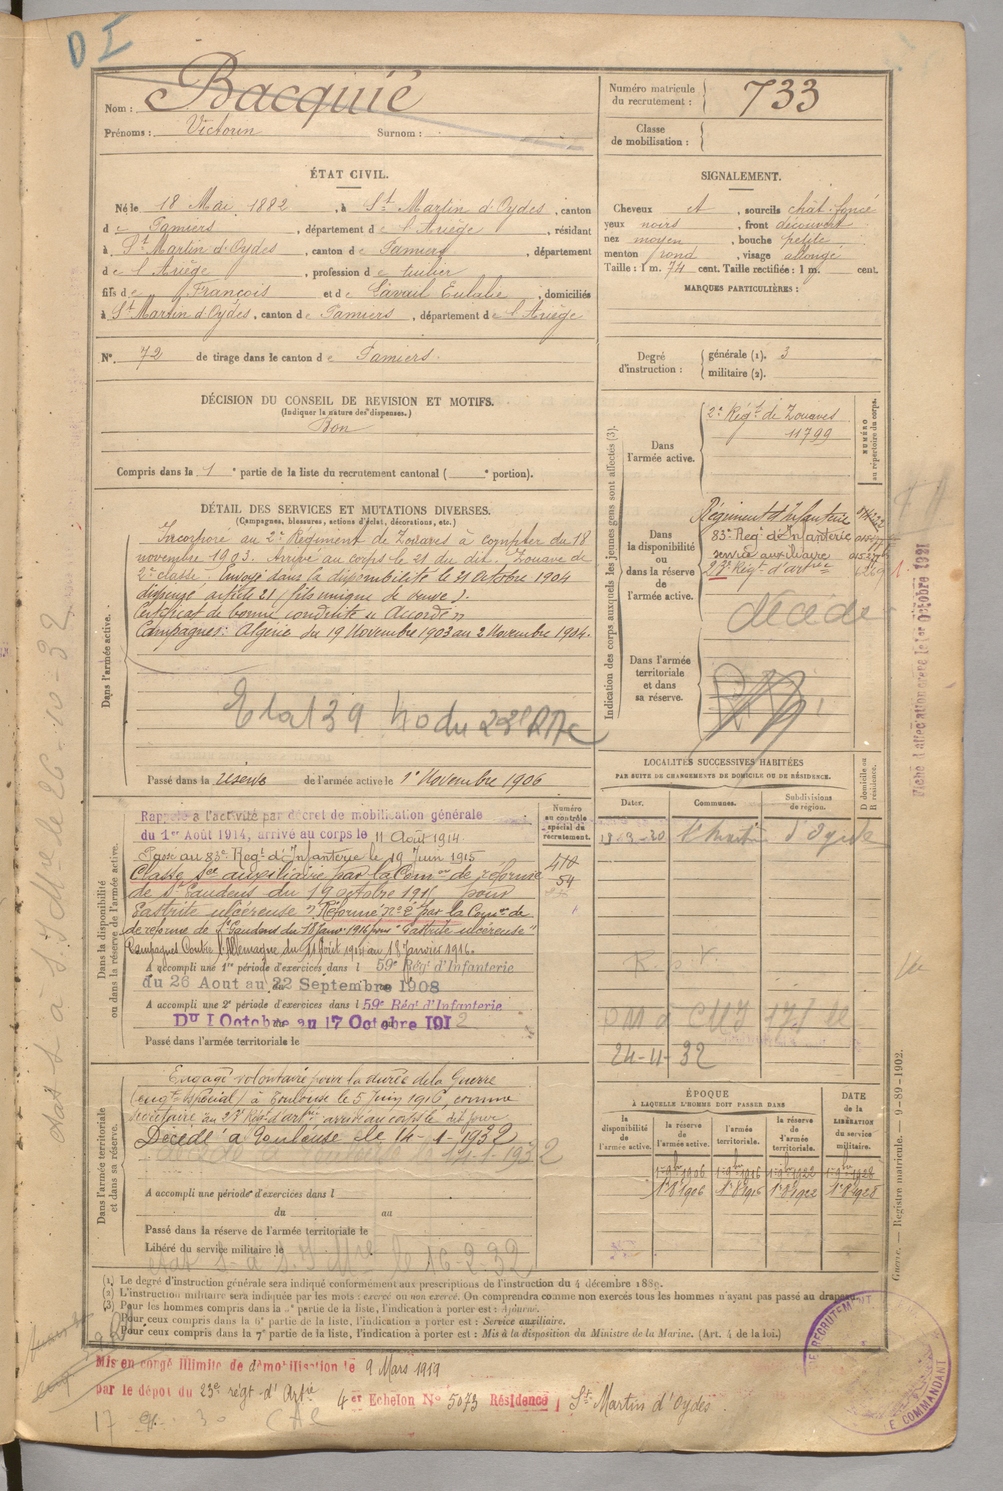 D I
Nom : Bacquié
Prénoms : Victorin Surnom :
Numéro matricule du recrutement : 733
Classe de mobilisation :
ÉTAT CIVIL.
Né le 18 Mai 1882, à St Martin d'Oydes, canton
de Pamiers, département de l'Ariège, résidant
à St Martin d'Oydes, canton de Pamiers, département
de l'Ariège, profession de
fils de François et de Lavail Eulalie, domiciliés
à St Martin d'Oydes, canton de Pamiers, département de l'Ariège
N° 72 de tirage dans le canton de Pamiers.
SIGNALEMENT.
Cheveux et, sourcils chât. foncé
yeux noirs, front découvert
nez moyen, bouche petite
menton rond, visage allongé
Taille : 1 m. 74 cent. Taille rectifiée : 1 m. cent.
MARQUES PARTICULIÈRES :
Degré d'instruction : générale (1). 3
militaire (2).
DÉCISION DU CONSEIL DE REVISION ET MOTIFS.
(Indiquer la nature des dispenses.)
Bon
Compris dans la 1e partie de la liste du recrutement cantonal ( e portion).
DÉTAIL DES SERVICES ET MUTATIONS DIVERSES.
(Campagnes, blessures, actions d'éclat, décorations, etc.)
Dans l'armée active.
Incorporé au 2e Régiment de Zouaves à compter du 18
novembre 1903. Arrivé au corps le 21 du dit. Zouave de
2e classe. Envoyé dans la disponibilité le 31 Octobre 1904
dispensé article 21 (fils unique de veuve).
Certificat de bonne conduite "Accordé"
Campagnes : Algérie du 19 Novembre 1903 au 2 Novembre 1904.
Etat 39 no du 23e
Passé dans la réserve de l'armée active le 1er Novembre 1906
Indication des corps auxquels les jeunes gens sont affectés (3).
NUMÉRO au répertoire du corps.
Dans l'armée active.
2e Régt de Zouaves
11799
Dans la disponibilité ou dans la réserve de l'armée active.
Régiment d'Infanterie
83e Régt d'Infanterie
service auxiliaire
23e Régt d'artie
décédé
Dans l'armée territoriale et dans sa réserve.
Fiche d'affectation créée le 1er Octobre 1921
Dans la disponibilité ou dans la réserve de l'armée active.
Numéro au contrôle spécial du recrutement.
410
54
Rappelé à l'activité par décret de mobilisation générale
du 1er Août 1914, arrivé au corps le 11 Août 1914.
Passé au 83e Régt d'Infanterie le 19 Juin 1915
Classé Sce auxiliaire par la Comon de réforme
de St Gaudens du 19 octobre 1915 pour
Gastrite ulcéreuse". Réformé n° 2 par la Comon de
de réforme de St Gaudens du 18 janv. 1916 pour "Gastrite ulcéreuse"
Campagnes Contre l'Allemagne du 11 Août 1914 au 18 Janvier 1916.
A accompli une 1re période d'exercices dans l 59e Régt d'Infanterie
du 26 Aout au 22 Septembre 1908
A accompli une 2e période d'exercices dans l 59e Régt d'Infanterie
Du 1 Octobre au 17 Octobre 1912
Passé dans l'armée territoriale le
LOCALITÉS SUCCESSIVES HABITÉES
PAR SUITE DE CHANGEMENTS DE DOMICILE OU DE RÉSIDENCE.
D domicile ou R résidence.
Dates. Communes. Subdivisions de région.
19-3-20 St Martin d'Oydes
24-11-32
Dans l'armée territoriale et dans sa réserve.
Engagé volontaire pour la durée de la Guerre
(engt spécial) à Toulouse le 5 juin 1916, comme
secrétaire au 23e Régt d'artie arrivé au corps le dit jour
Décédé à Toulouse le 14-1-1932
14-1-1932
A accompli une période d'exercices dans l
du au
Passé dans la réserve de l'armée territoriale le
Libéré du service militaire le
16-2-32
ÉPOQUE
À LAQUELLE L'HOMME DOIT PASSER DANS
la disponibilité de l'armée active. la réserve de l'armée active. l'armée territoriale. la réserve de l'armée territoriale.
DATE de la LIBÉRATION du service militaire.
1er 9bre 1906 1er 9bre 1916 1er 9bre 1922 1er 9bre 1928
1er 8 1906 1er 8 1916 1er 8 1922 1er 8 1928
(1) Le degré d'instruction générale sera indiqué conformément aux prescriptions de l'instruction du 4 décembre 1889.
(2) L'instruction militaire sera indiquée par les mots : exercé ou non exercé. On comprendra comme non exercés tous les hommes n'ayant pas passé au drapeau.
(3) Pour les hommes compris dans la 2e partie de la liste, l'indication à porter est : Ajourné.
Pour ceux compris dans la 6e partie de la liste, l'indication à porter est : Service auxiliaire.
Pour ceux compris dans la 7e partie de la liste, l'indication à porter est : Mis à la disposition du Ministre de la Marine. (Art. 4 de la loi.)
Guerre. — Registre matricule. — 9-89-1902.
Mis en congé illimité de démobilisation le 9 Mars 1919
par le dépôt du 23e régt d'Artie 4e Echelon No 5073 Résidence St Martin d'Oydes.
RECRUTEMENT
COMMANDANT